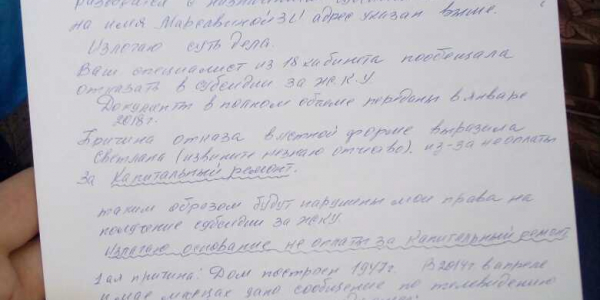 на имя Марелвиной З.И адрес указан выше.
Излогаю суть дела.
Ваш специалист из 18 кабинета пообещала
отказать в субсидии за ЖСКУ.
Документы в полном объеме переданы в январе
2018 г.
Причина отказа в устной форме выразила
Светлана (извините незнаю отчество), из-за неоплаты
за Капитальный ремонт.
таким образом будут нарушены мои права на
получение субсидии за ЖСКУ.
Излогаю основание не оплаты за Капитальный ремонт
1ая причина: Дом построен 1947 г. В 2014 г в апреле
и мае месяцах дано сообщение по телевидению